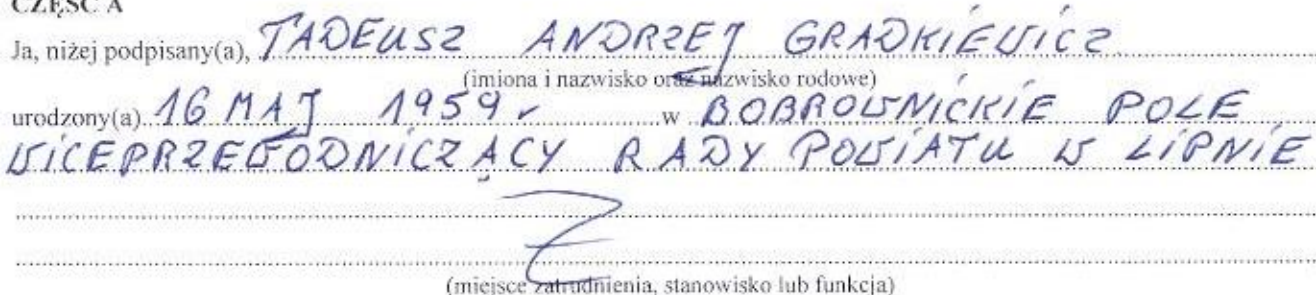 CZĘŚĆ A
Ja, niżej podpisany(a), TADEUSZ ANDRZEJ GRADKIEWICZ
(imiona i nazwisko oraz nazwisko rodowe)
urodzony(a) 16 MAJ 1959 r w BOBROWNICKIE POLE
WICEPRZEWODNICZĄCY RADY POWIATU W LIPNIE
(miejsce zatrudnienia, stanowisko lub funkcja)